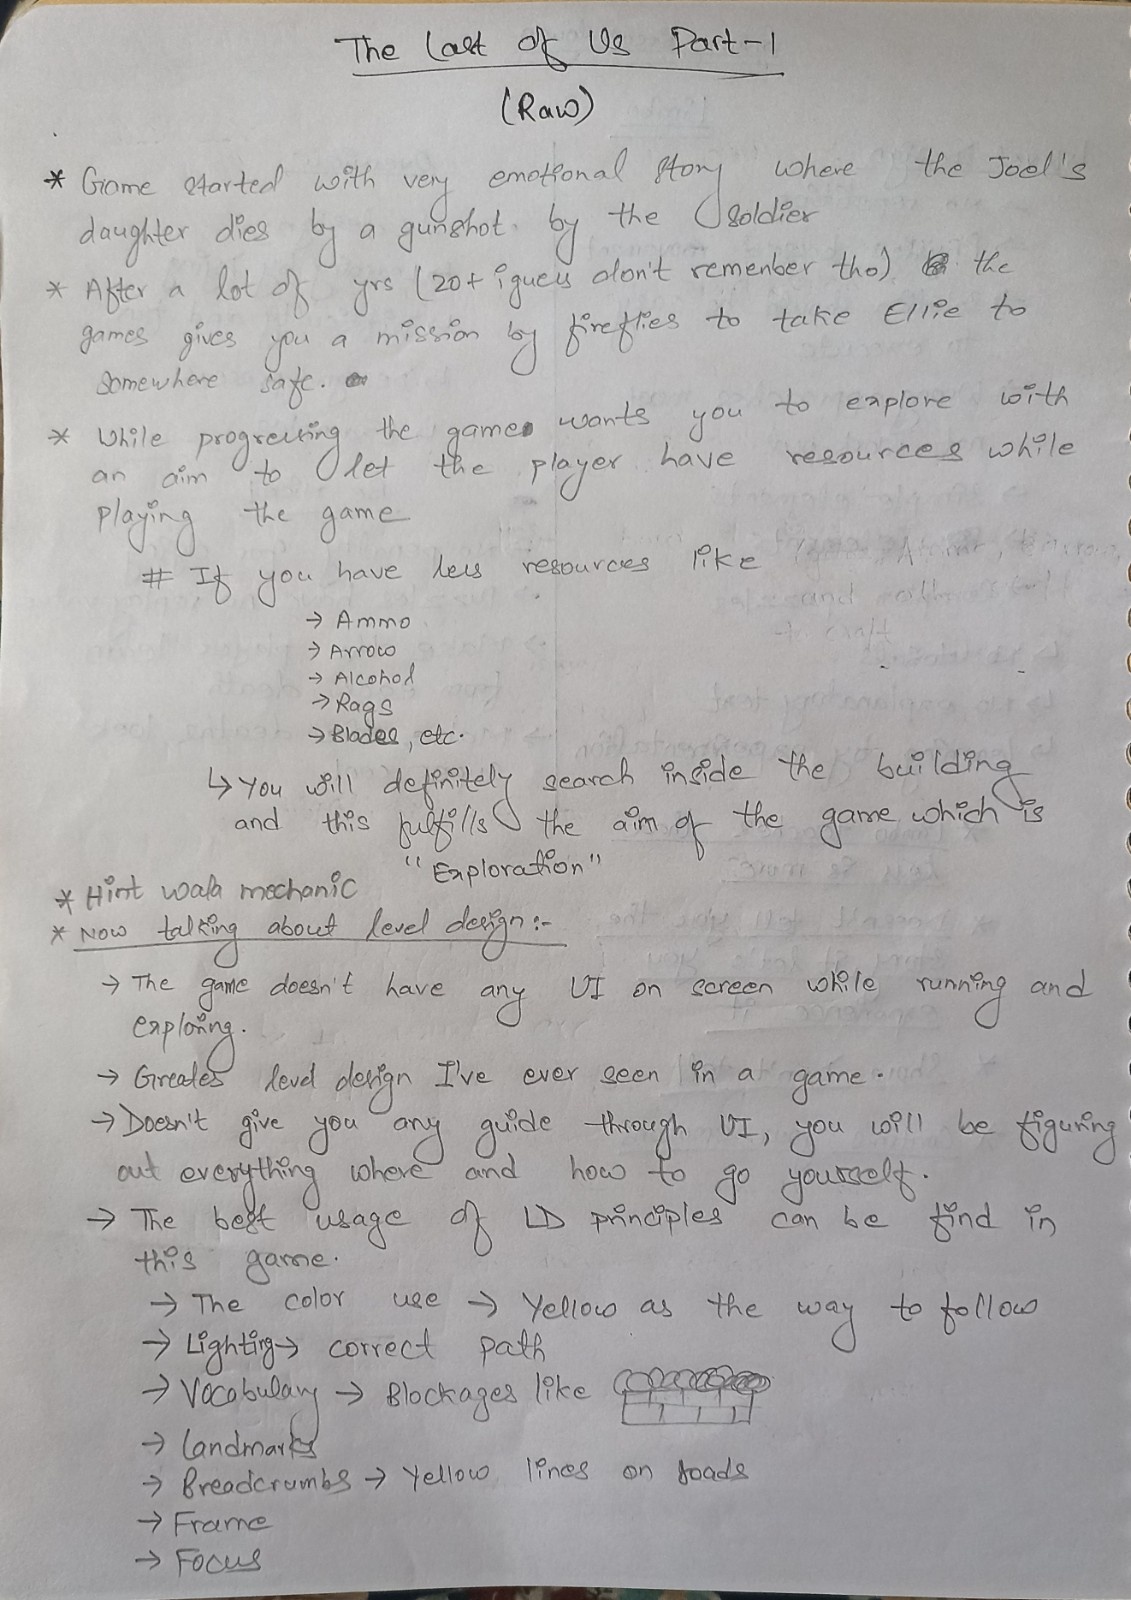 The Last of Us Part-1
(Raw)
* Game started with very emotional story where the Joel's
daughter dies by a gunshot by the soldier
* After a lot of yrs (20+ i guess don't remember tho) the
games gives you a mission by fireflies to take Ellie to
somewhere safe.
* While progressing the game wants you to explore with
an aim to let the player have resources while
playing the game
# If you have less resources like
→ Ammo
→ Arrow
→ Alcohol
→ Rags
→ Blades, etc.
↳ You will definitely search inside the building
and this fulfills the aim of the game which is
"Exploration"
* Hint wala mechanic
* Now talking about level design :-
→ The game doesn't have any UI on screen while running and
exploring.
→ Greates level design I've ever seen in a game.
→ Doesn't give you any guide through UI, you will be figuring
out everything where and how to go yourself.
→ The best usage of LD principles can be find in
this game.
→ The color use → Yellow as the way to follow
→ Lighting → correct path
→ Vocabulary → Blockages like
→ Landmarks
→ Breadcrumbs → Yellow lines on roads
→ Frame
→ Focus